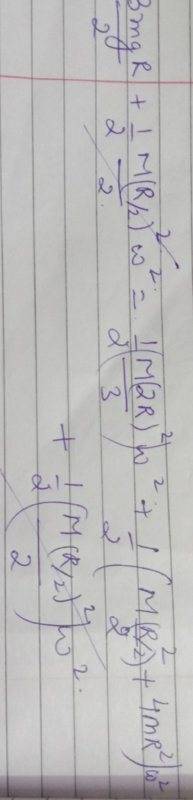 3mgR/2 + 1/2 M(R/2)²/2 ω² = 1/2 (M(2R)²/3) ω² + 1/2 (M(R/2)²/2 + 4mR²) ω²
+ 1/2 (M(R/2)²/2) ω².